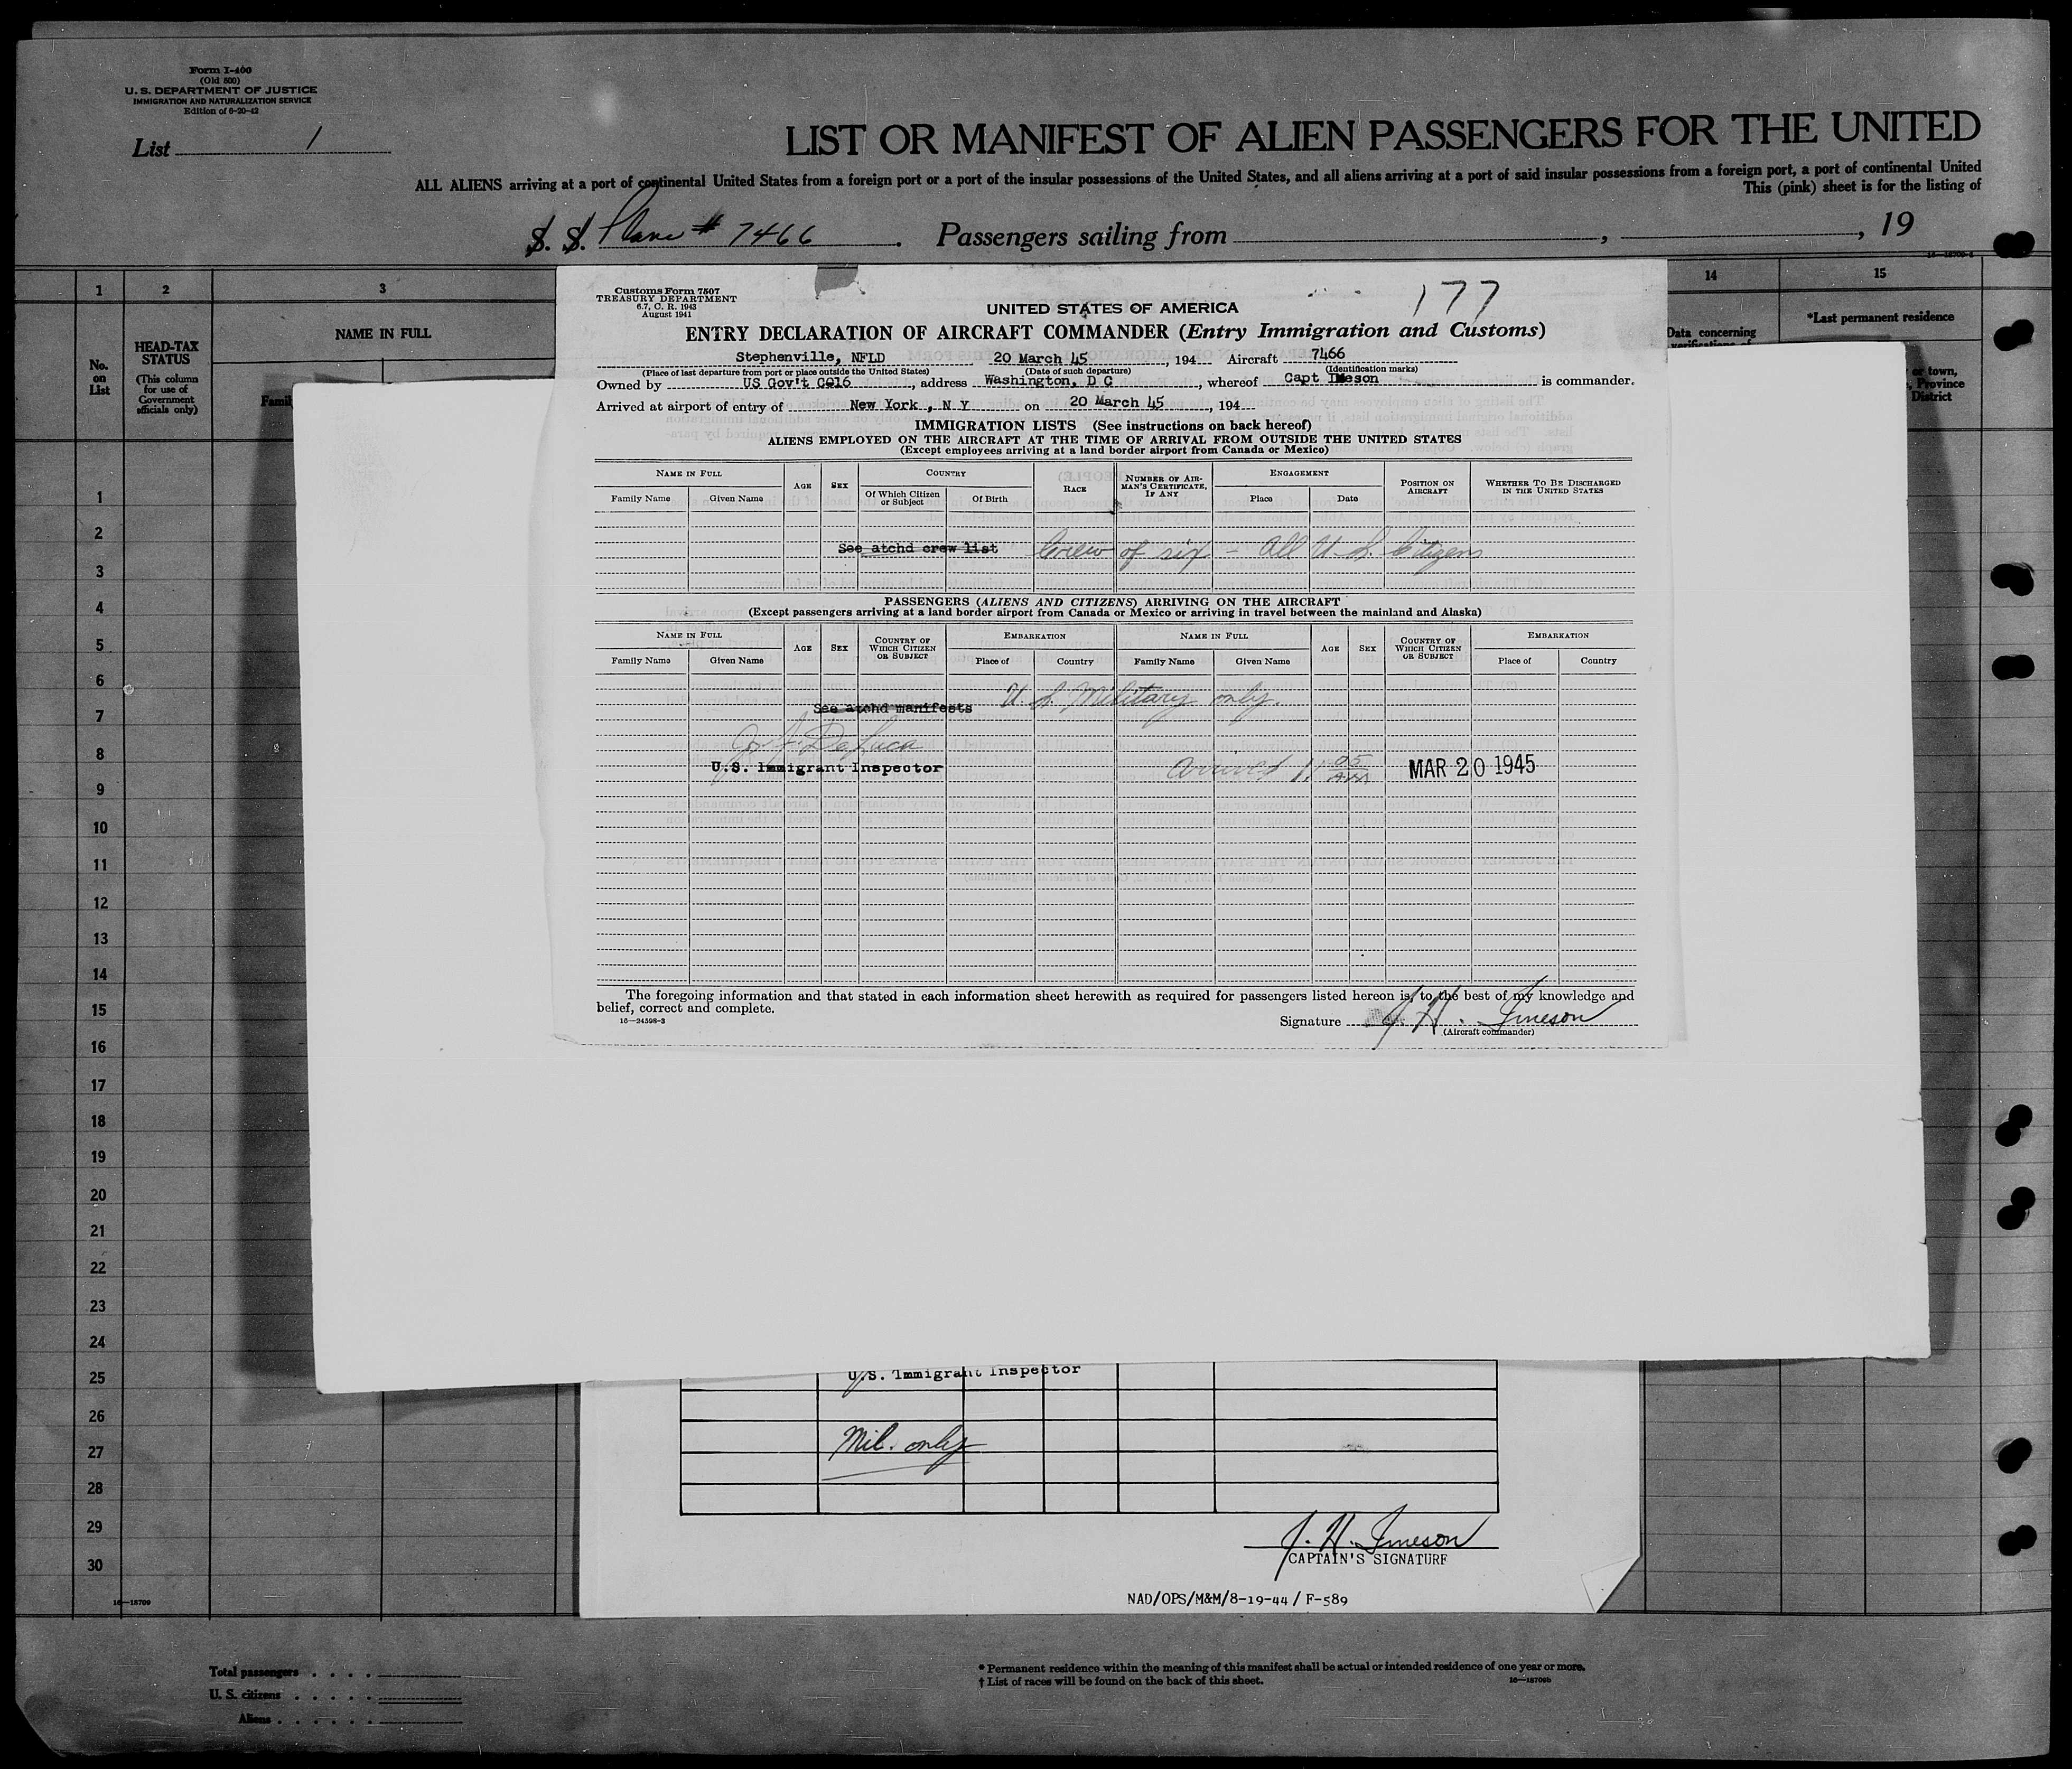 Form I-400
(Old 500)
U. S. DEPARTMENT OF JUSTICE
IMMIGRATION AND NATURALIZATION SERVICE
Edition of 6-20-42
List 1
LIST OR MANIFEST OF ALIEN PASSENGERS FOR THE UNITED
ALL ALIENS arriving at a port of continental United States from a foreign port or a port of the insular possessions of the United States, and all aliens arriving at a port of said insular possessions from a foreign port, a port of continental United
This (pink) sheet is for the listing of
S. S. Plane # 7466 . Passengers sailing from , , 19
1 2 3 14 15
HEAD-TAX STATUS
(This column for use of Government officials only)
NAME IN FULL
Data concerning
*Last permanent residence
No. on List
Famil
or town,
Province
District
Customs Form 7507
TREASURY DEPARTMENT
6.7, C. R. 1943
August 1941
177
UNITED STATES OF AMERICA
ENTRY DECLARATION OF AIRCRAFT COMMANDER (Entry Immigration and Customs)
Stephenville, NFLD 20 March 45, 194 Aircraft 7466
(Place of last departure from port or place outside the United States) (Date of such departure) (Identification marks)
Owned by US Gov't C916, address Washington, D C, whereof Capt Imeson is commander.
Arrived at airport of entry of New York, N Y on 20 March 45, 194
IMMIGRATION LISTS (See instructions on back hereof)
ALIENS EMPLOYED ON THE AIRCRAFT AT THE TIME OF ARRIVAL FROM OUTSIDE THE UNITED STATES
(Except employees arriving at a land border airport from Canada or Mexico)
NAME IN FULL AGE SEX COUNTRY RACE NUMBER OF AIRMAN'S CERTIFICATE, IF ANY ENGAGEMENT POSITION ON AIRCRAFT WHETHER TO BE DISCHARGED IN THE UNITED STATES
Family Name Given Name Of Which Citizen or Subject Of Birth Place Date
See atchd crew list Crew of six - All U S Citizens
PASSENGERS (ALIENS AND CITIZENS) ARRIVING ON THE AIRCRAFT
(Except passengers arriving at a land border airport from Canada or Mexico or arriving in travel between the mainland and Alaska)
NAME IN FULL AGE SEX COUNTRY OF WHICH CITIZEN OR SUBJECT EMBARKATION NAME IN FULL AGE SEX COUNTRY OF WHICH CITIZEN OR SUBJECT EMBARKATION
Family Name Given Name Place of Country Family Name Given Name Place of Country
U. S. Military only.
See atchd manifests
DeLuca
U.S. Immigrant Inspector
Arrived 11 05 AM MAR 20 1945
The foregoing information and that stated in each information sheet herewith as required for passengers listed hereon is, to the best of my knowledge and
belief, correct and complete.
16—24598-3
Signature J. H. Imeson
(Aircraft commander)
1
2
3
4
5
6
7
8
9
10
11
12
13
14
15
16
17
18
19
20
21
22
23
24
25
26
27
28
29
30
U.S. Immigrant Inspector
Mil. only
J. H. Imeson
CAPTAIN'S SIGNATURE
NAD/OPS/M&M/8-19-44 / F-589
16—18709
Total passengers
U. S. citizens
Aliens
* Permanent residence within the meaning of this manifest shall be actual or intended residence of one year or more.
† List of races will be found on the back of this sheet.
16—18709b